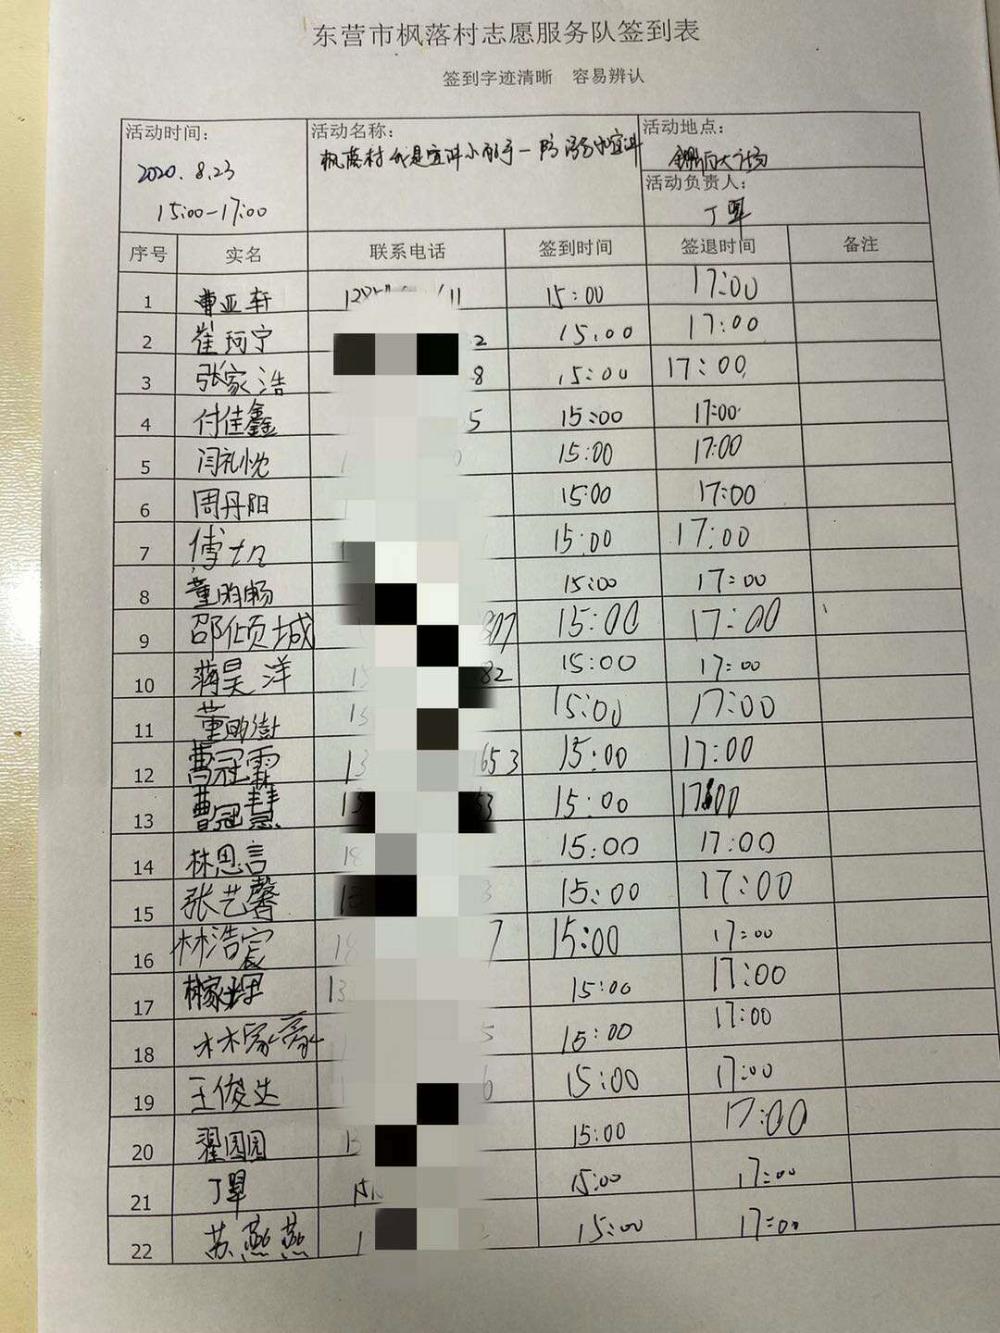 东营市枫落村志愿服务队签到表
签到字迹清晰 容易辨认
活动时间: 活动名称: 活动地点:
2020.8.23 枫落村我是宣讲小能手一防溺水宣讲
15:00-17:00 活动负责人:
丁翠
序号 实名 联系电话 签到时间 签退时间 备注
1 曹亚轩 11 15:00 17:00
2 崔珂宁 2 15:00 17:00
3 张家浩 8 15:00 17:00
4 付佳鑫 5 15:00 17:00
5 闫礼悦 15:00 17:00
6 周丹阳 15:00 17:00
7 傅 15:00 17:00
8 董昀畅 15:00 17:00
9 邵倾城 807 15:00 17:00
10 蒋昊洋 15 82 15:00 17:00
11 董昀澍 15:00 17:00
12 曹冠霖 13 653 15:00 17:00
13 曹冠慧 13 53 15:00 17:00
14 林思言 18 15:00 17:00
15 张艺馨 3 15:00 17:00
16 林浩宸 18 7 15:00 17:00
17 13 15:00 17:00
18 林家豪 5 15:00 17:00
19 王俊达 6 15:00 17:00
20 翟园园 15:00 17:00
21 丁翠 15:00 17:00
22 苏燕燕 1 15:00 17:00